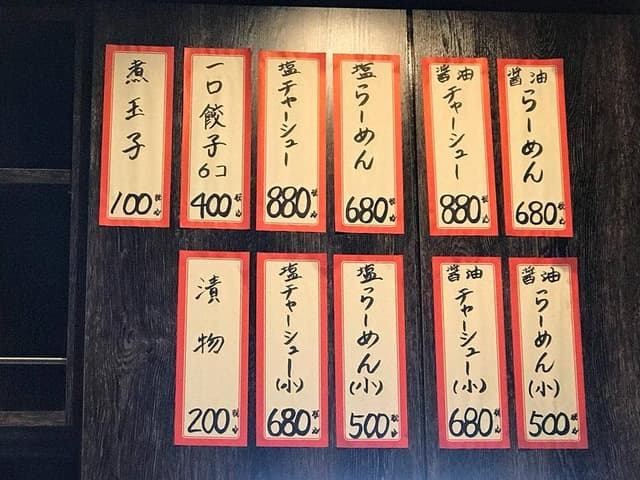 醤油らーめん
680税込
醤油チャーシュー
880税込
塩らーめん
680税込
塩チャーシュー
880税込
一口餃子
6コ
400税込
煮玉子
100税込
醤油らーめん(小)
500税込
醤油チャーシュー(小)
680税込
塩らーめん(小)
500税込
塩チャーシュー(小)
680税込
漬物
200税込